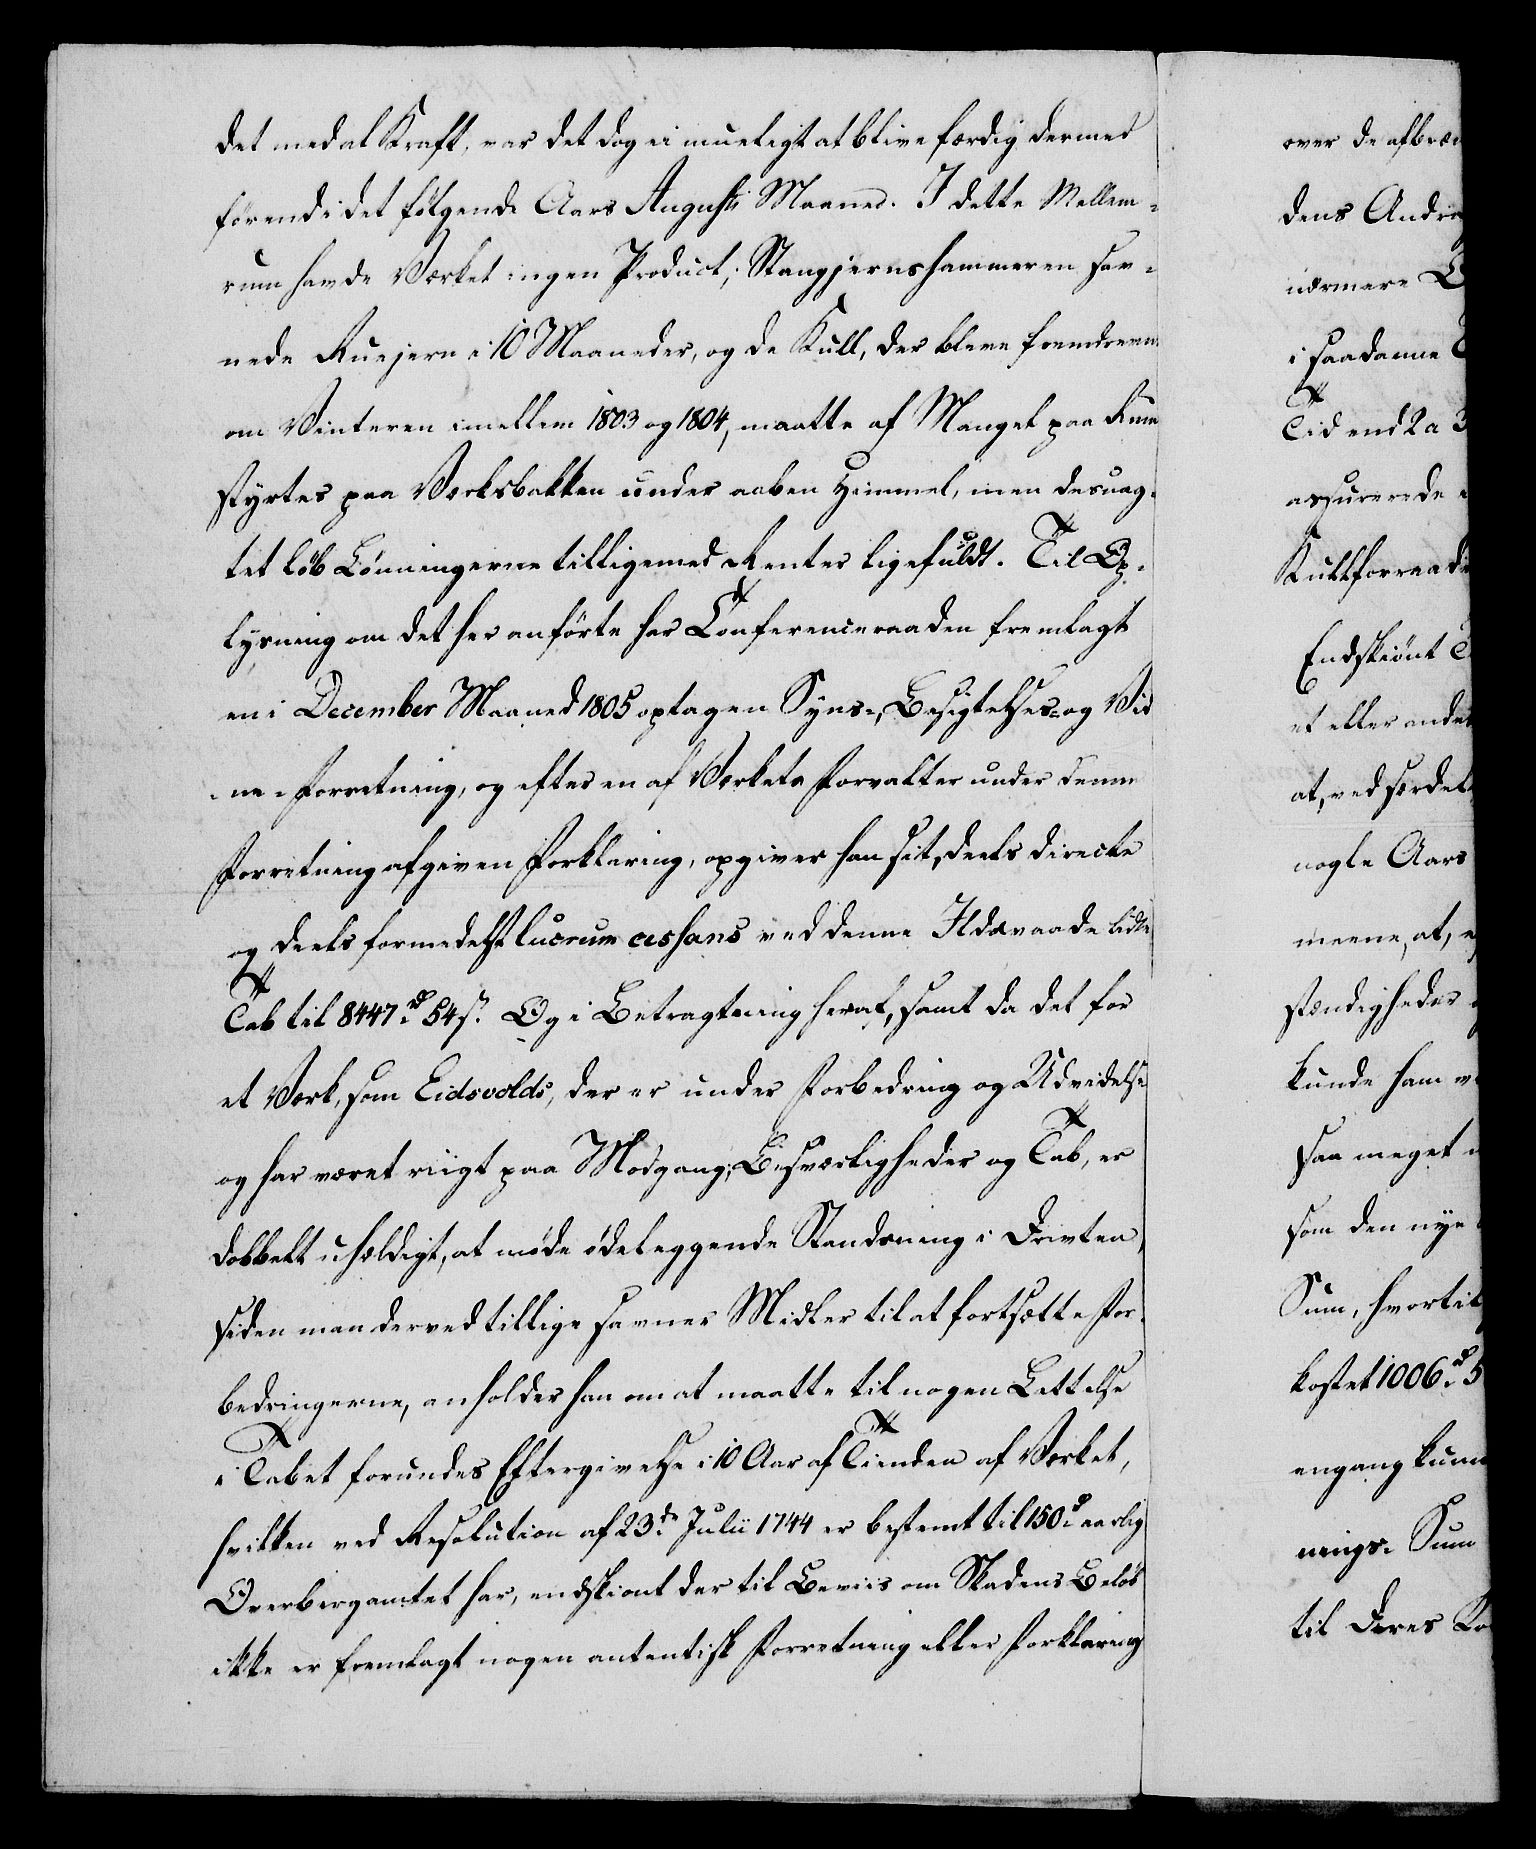 det med al Kraft, var det dog ei mueligt at blive færdig dermed
förend i det fölgende Aars Augusti Maaned. I dette Mellem-
rum havde Værket ingen Product; Stangjernshammeren sav-
nede Ruejern i 10 Maaneder, og de Kull, der bleve fremdrevne
om Vinteren imellem 1803 og 1804, maatte af Mangel paa Rum
styrtes paa Værksbakken under aaben Himmel, men desuag-
tet löb Lönningerne tilligemed Renter ligefuldt. Til Op-
lysning om det her anförte har Conferenceraaden fremlagt
en i December Maaned 1805 optagen Syns-, Besigtelses- og Vid
ne-Forretning, og efter en af Værkets Forvalter under denne
Forretning afgiven Forklaring, opgiver han sit, deels directe
og deels formedelst lucrum cessans ved denne Ildsvaade lidte
Tab til 8447 rd 54 s. Og i Betragtning heraf, samt da det for
et Værk, som Eidsvolds, der er under Forbedring og Udvidelse
og har været riigt paa Modgang, Besværligheder og Tab, er
dobbelt uheldigt, at möde ödeleggende Standsning i Driften,
siden man derved tillige savner Midler til at fortsætte For-
bedringerne, anholder han om at maatte til nogen Lettelse
i Tabet forundes Eftergivelse i 10 Aar af Tienden af Værket,
hvilken ved Resolution af 23de Julii 1744 er bestemt til 150 rd aarlig
Overbergamtet har, endskiönt der til Beviis om Skadens Belöb
ikke er fremlagt nogen autentisk Forretning eller Forklaring
over de afbræn
dens Andra
nærmere
i saadanne
Tid end 2 a 3
assurerede
Kullforraad
Endskiönt
et eller andet
at, ved særdel
nogle Aars
meene, at,
stændigheder
kunde ham
saa meget
som den nye
Sum, hvortil
kostet 1006 rd 5
engang kun
nings-Sum
til Deres